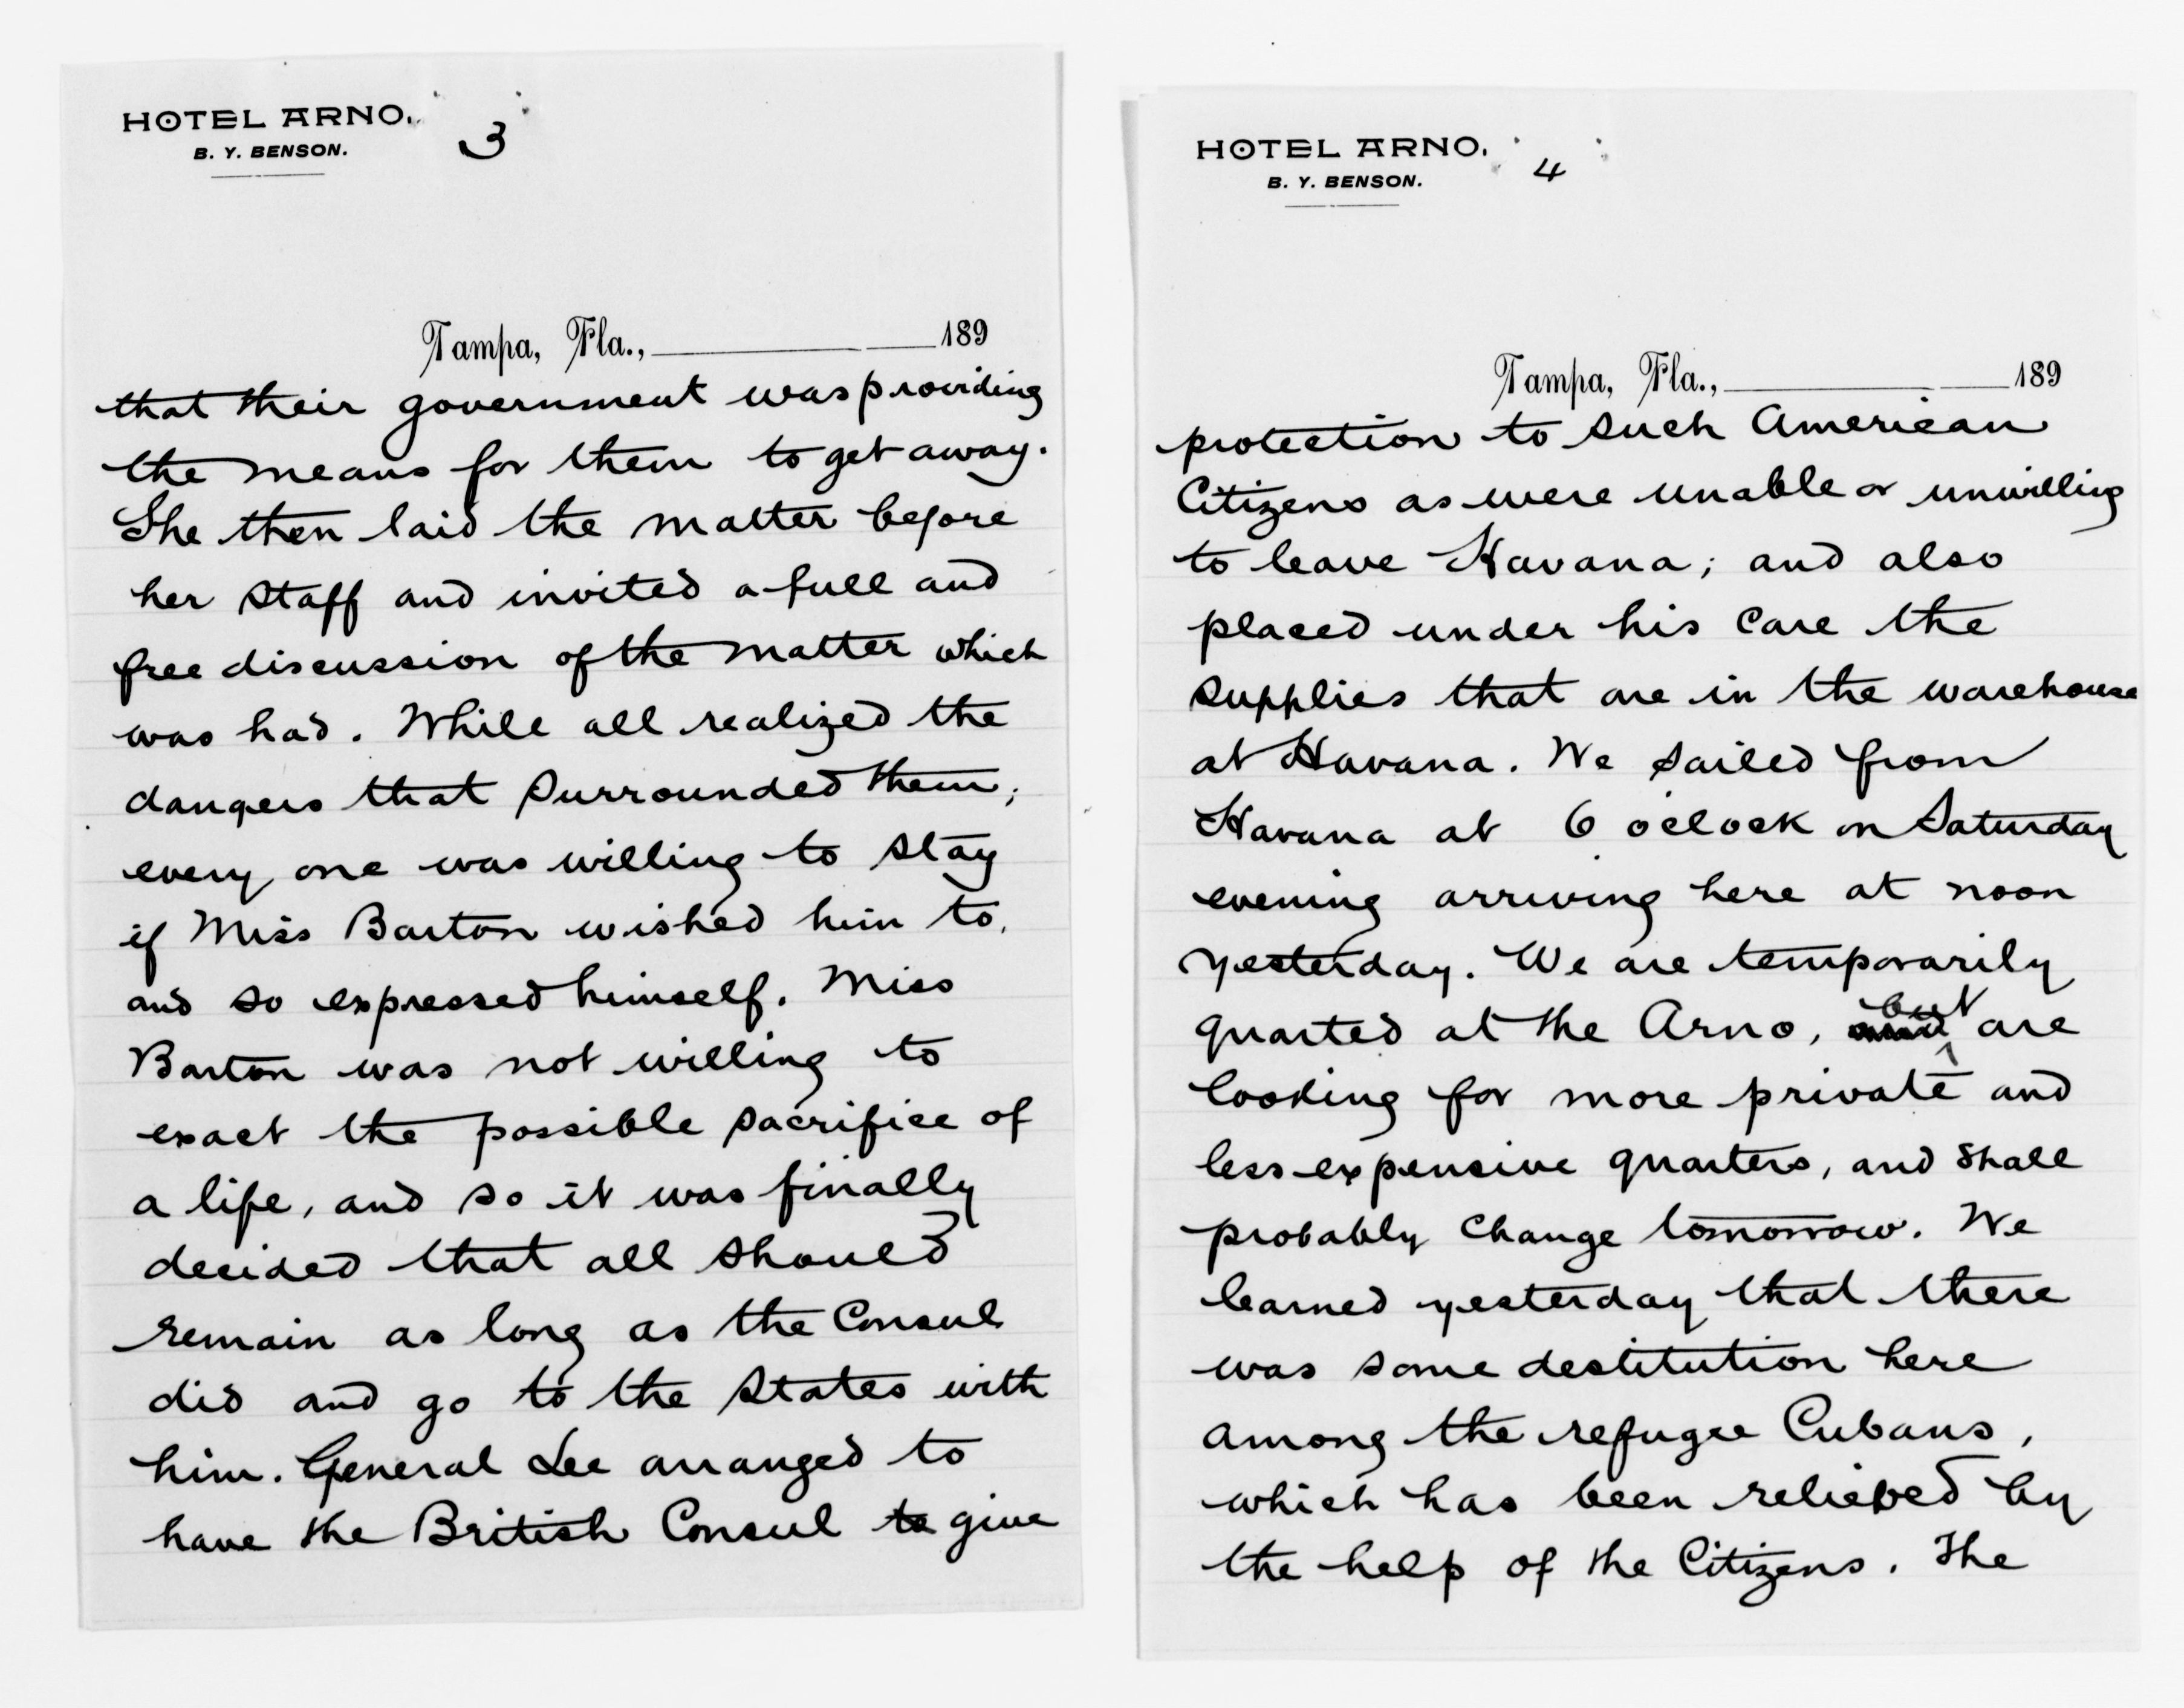 HOTEL ARNO.
B. Y. BENSON.
3
Tampa, Fla., 189
that their government was providing
the means for them to get away.
She then laid the matter before
her staff and invited a full and
free discussion of the matter which
was had. While all realized the
dangers that surrounded them,
every one was willing to stay
if Miss Barton wished him to,
and so expressed himself. Miss
Barton was not willing to
exact the possible sacrifice of
a life, and so it was finally
decided that all should
remain as long as the Consul
did and go to the States with
him. General Lee arranged to
have the British Consul to give
HOTEL ARNO.
B. Y. BENSON.
4
Tampa, Fla., 189
protection to such American
Citizens as were unable or unwilling
to leave Havana; and also
placed under his care the
supplies that are in the warehouse
at Havana. We sailed from
Havana at 6 oclock on Saturday
evening arriving here at noon
yesterday. We are temporarily
quarted at the Arno, but are
looking for more private and
less expensive quarters, and shall
probably change tomorrow. We
learned yesterday that there
was some destitution here
among the refugee Cubans,
which has been relieved by
the help of the Citizens. The